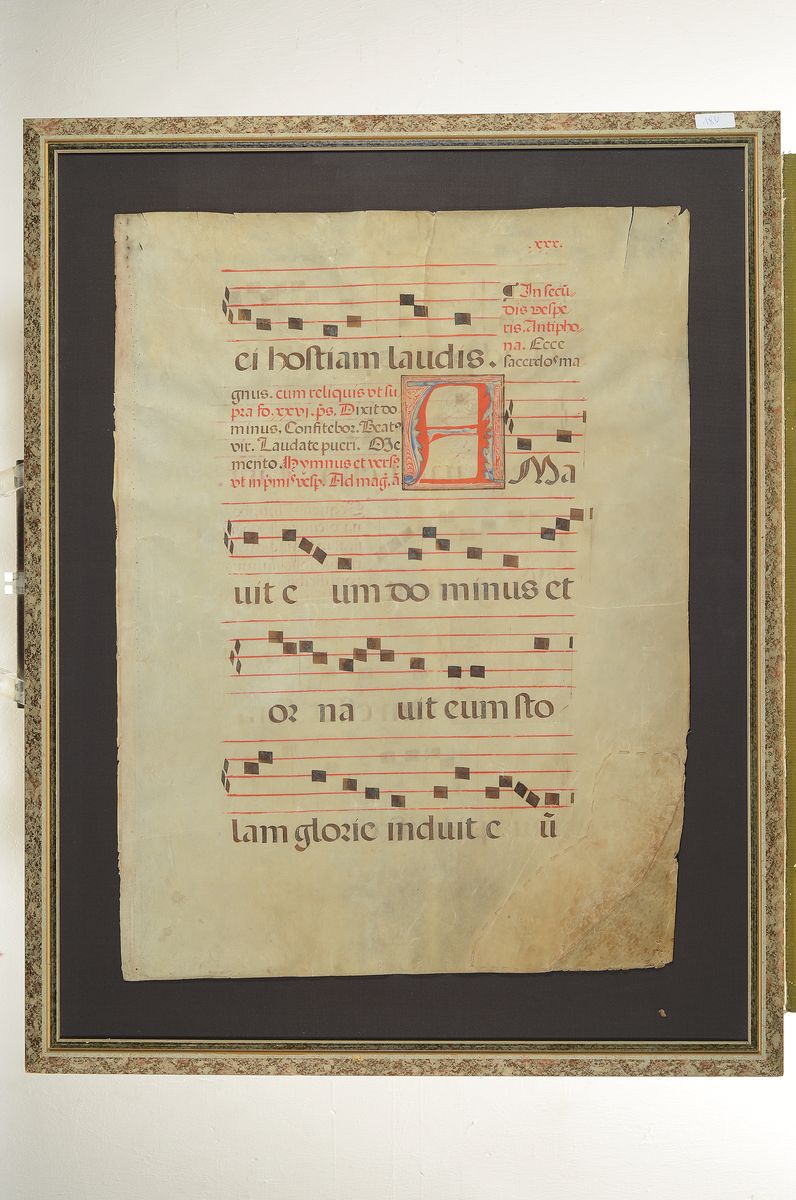 .xxx.
ei hostiam laudis.
¶ In secũ
dis vespe
ris. Antipho
na. Ecce
sacerdos ma
gnus. cum reliquis vt su
pra fo. xxvj. p̃s. Dixit do
minus. Confitebor. Beatꝰ
vir. Laudate pueri. Me
mento. Hymnus et versꝰ
vt in p̃miꝭ vesp̃. Ad mag̃. ã
A Ma
uit e um do minus et
or na uit eum sto
lam glorie induit e ũ